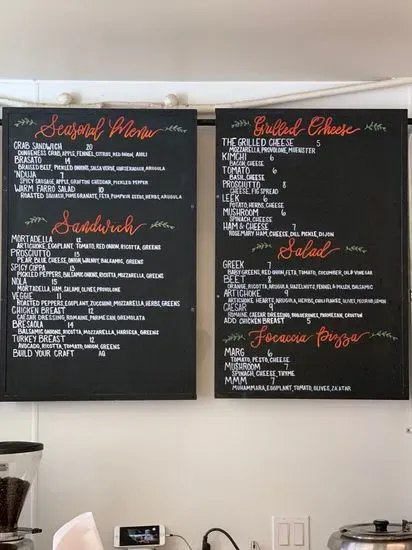 Seasonal Menu
CRAB SANDWICH 20
DUNGENESS CRAB, APPLE, FENNEL, CITRUS, RED ONION, AIOLI
BRASATO 14
BRAISED BEEF, PICKLED ONIONS, SALSA VERDE, HORSERADISH, ARUGULA
'NDUJA 7
SPICY SAUSAGE, APPLE, GRAFTON CHEDDAR, PICKLED PEPPER
WARM FARRO SALAD 10
ROASTED SQUASH, POMEGRANATE, FETA, PUMPKIN SEEDS, HERBS, ARUGULA
Sandwich
MORTADELLA 12
ARTICHOKE, EGGPLANT, TOMATO, RED ONION, RICOTTA, GREENS
PROSCIUTTO 13
PEAR, BLUE CHEESE, ONION, WALNUT, BALSAMIC, GREENS
SPICY COPPA 13
PICKLED PEPPERS, BALSAMIC ONIONS, RICOTTA, MOZZARELLA, GREENS
NOLA 15
MORTADELLA, HAM, SALAMI, OLIVES, PROVOLONE
VEGGIE 11
ROASTED PEPPERS, EGGPLANT, ZUCCHINI, MOZZARELLA, HERBS, GREENS
CHICKEN BREAST 12
CAESAR DRESSING, ROMAINE, PARMESAN, GREMOLATA
BRESAOLA 14
BALSAMIC ONIONS, RICOTTA, MOZZARELLA, HARISSA, GREENS
TURKEY BREAST 12
AVOCADO, RICOTTA, TOMATO, ONION, GREENS
BUILD YOUR CRAFT AQ
Grilled Cheese
THE GRILLED CHEESE 5
MOZZARELLA, PROVOLONE, MUENSTER
KIMCHI 6
BACON, CHEESE
TOMATO 6
BASIL, CHEESE
PROSCIUTTO 8
CHEESE, FIG SPREAD
LEEK 6
POTATO, HERBS, CHEESE
MUSHROOM 6
SPINACH, CHEESE
HAM & CHEESE 7
ROSEMARY HAM, CHEESE, DILL PICKLE, DIJON
Salad
GREEK 7
BABY GREENS, RED ONION, FETA, TOMATO, CUCUMBER, OLIVES
BEET 8
ORANGE, RICOTTA, ARUGULA, HAZELNUTS, FENNEL POLLEN, BALSAMIC
ARTICHOKE 9
ARTICHOKE HEARTS, ARUGULA, HERBS, OLIVES
CAESAR 9
ROMAINE, CAESAR DRESSING, PARMESAN, CROUTON
ADD CHICKEN BREAST 5
Focaccia Pizza
MARG 6
TOMATO, PESTO, CHEESE
MUSHROOM 7
SPINACH, CHEESE, THYME
MMM 7
MUHAMMARA, EGGPLANT, TOMATO, OLIVES, ZA'ATAR